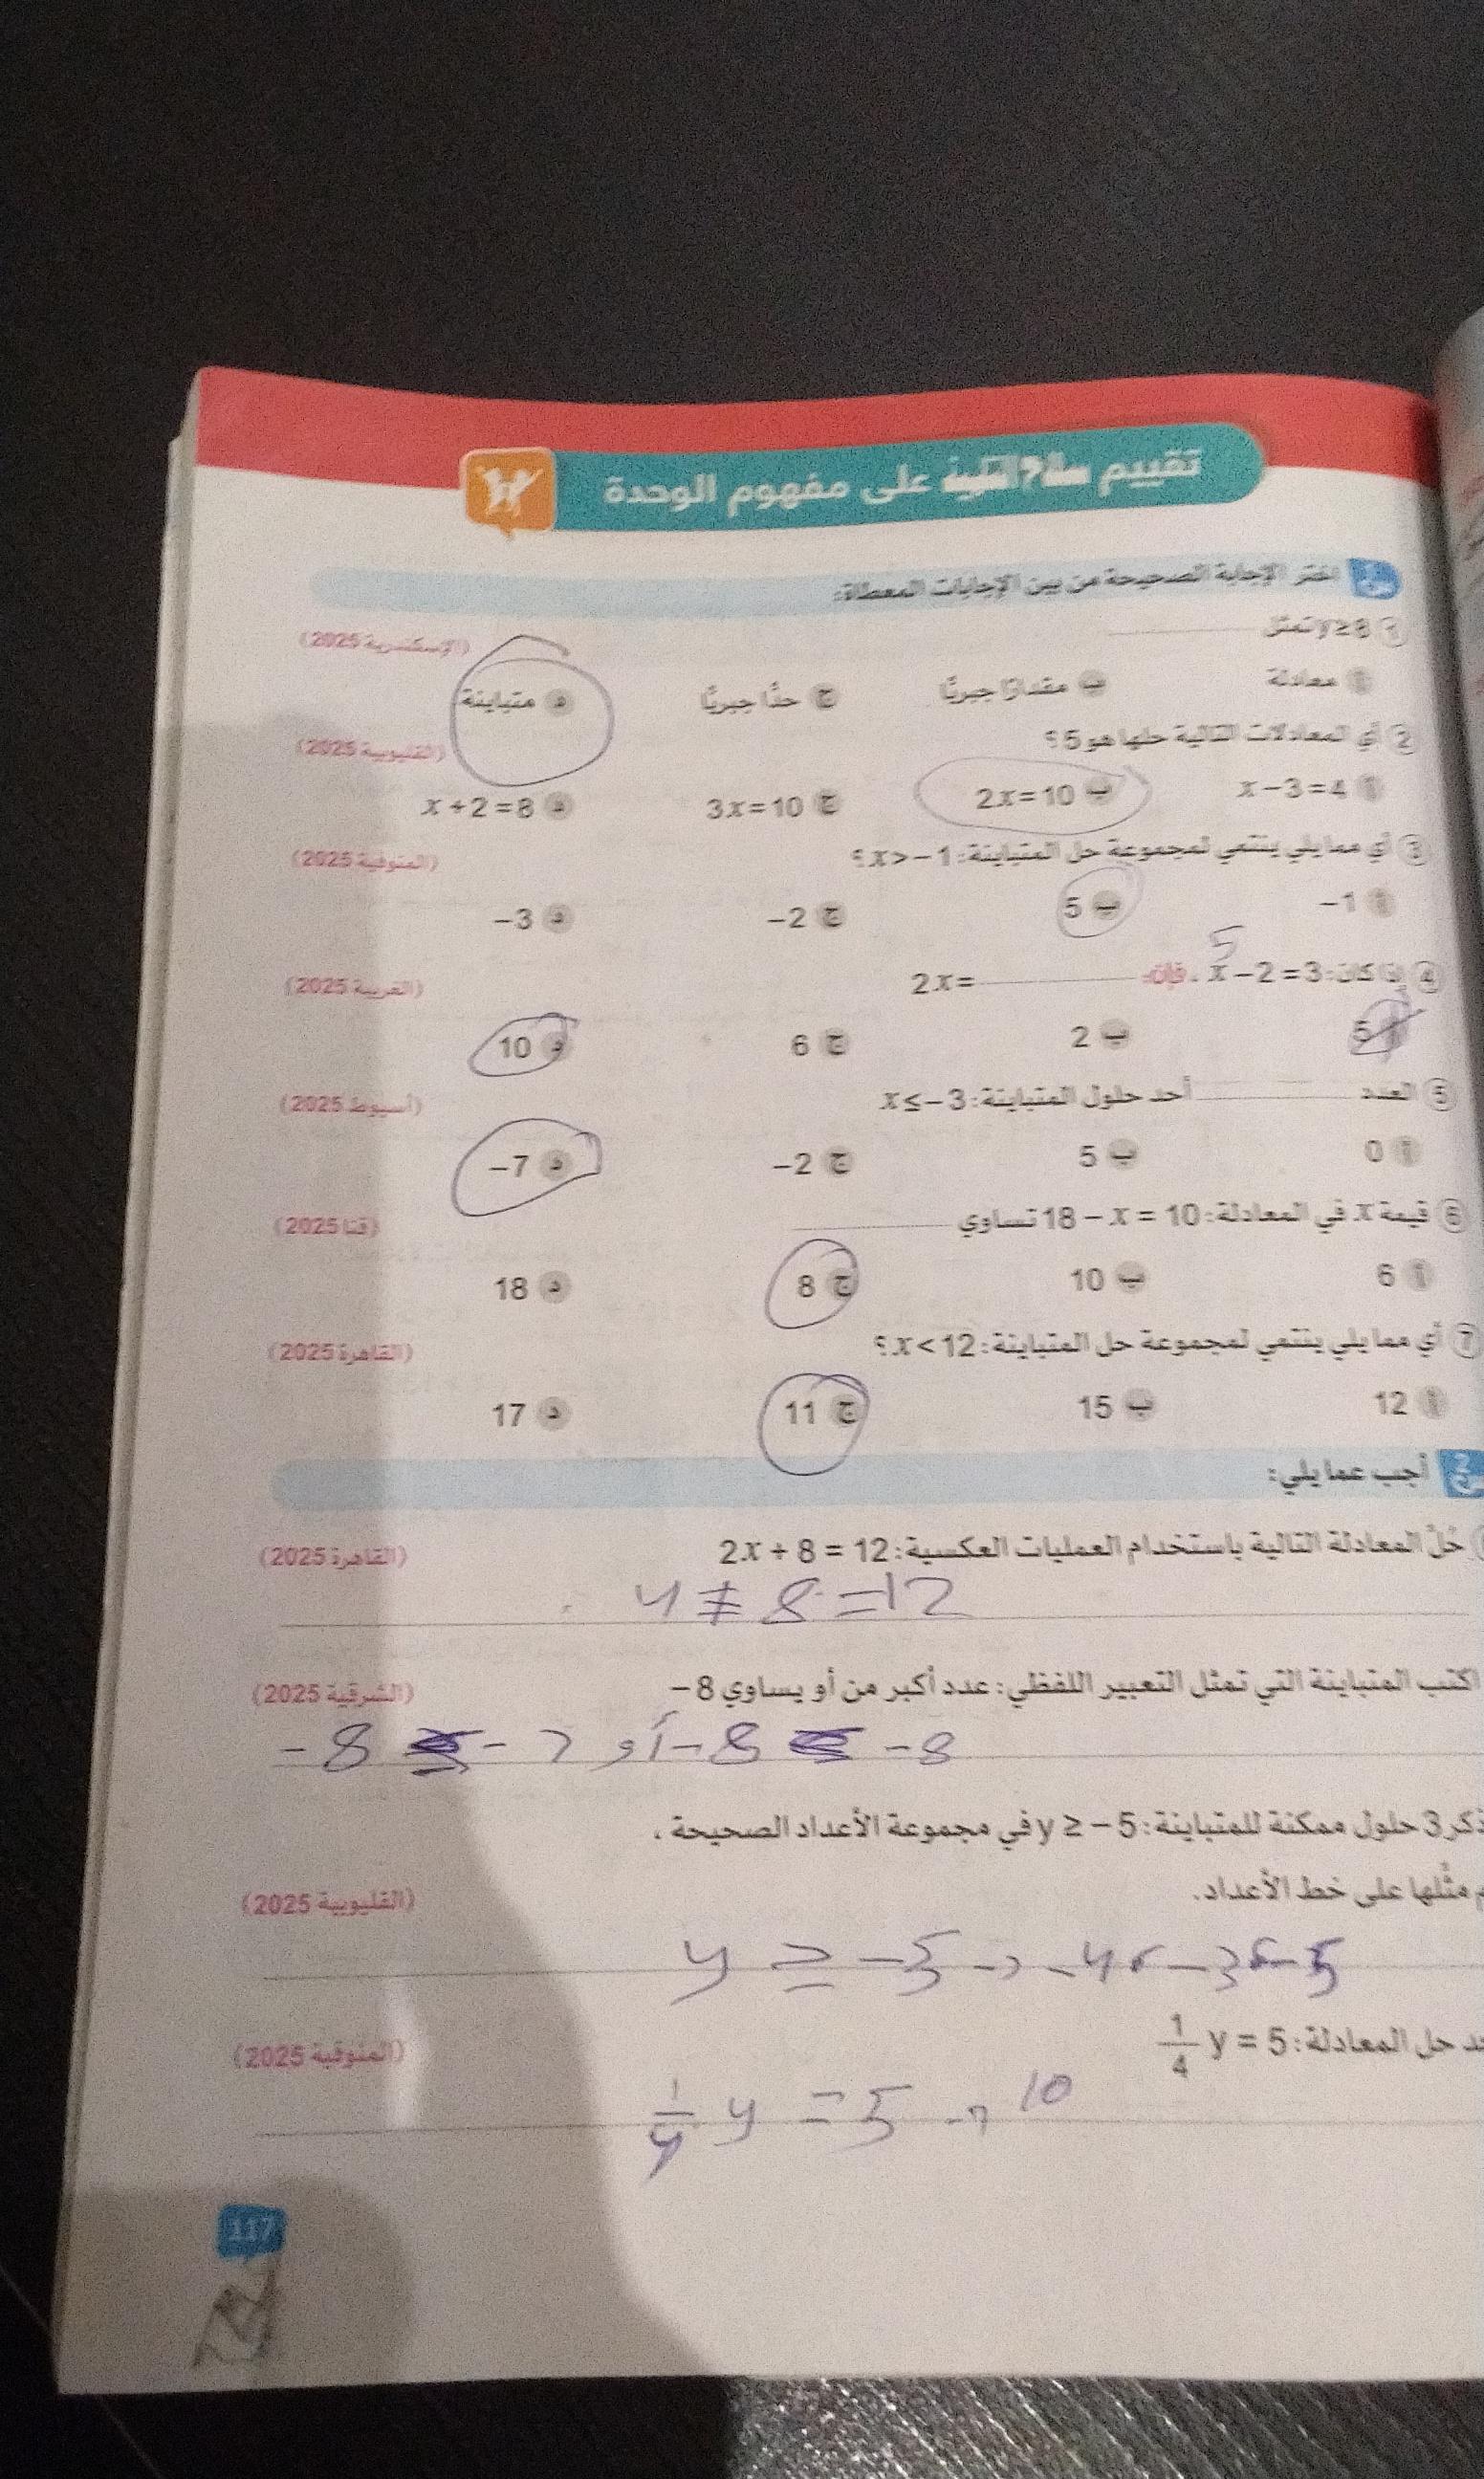 تقييم سلاح التلميذ على مفهوم الوحدة
اختر الإجابة الصحيحة من بين الإجابات المعطاة:
1 y≥8 تمثل (الإسكندرية 2025)
أ معادلة ب مقدارًا جبريًّا ج حدًّا جبريًّا د متباينة
2 أي المعادلات التالية حلها هو 5 ؟ (القليوبية 2025)
أ x−3=4 ب 2x=10 ج 3x=10 د x+2=8
3 أي مما يلي ينتمي لمجموعة حل المتباينة: x>−1 ؟ (المنوفية 2025)
أ −1 ب 5 ج −2 د −3
5
4 إذا كان: x−2=3 ، فإن: 2x= (الغربية 2025)
أ 5 ب 2 ج 6 د 10
5 العدد أحد حلول المتباينة: x≤−3 (أسيوط 2025)
أ 0 ب 5 ج −2 د −7
6 قيمة x في المعادلة: 18 − x = 10 تساوي (قنا 2025)
أ 6 ب 10 ج 8 د 18
7 أي مما يلي ينتمي لمجموعة حل المتباينة: x<12 ؟ (القاهرة 2025)
أ 12 ب 15 ج 11 د 17
2 س أجب عما يلي:
حُلَّ المعادلة التالية باستخدام العمليات العكسية: 2x + 8 = 12 (القاهرة 2025)
8 = 12
اكتب المتباينة التي تمثل التعبير اللفظي: عدد أكبر من أو يساوي 8− (الشرقية 2025)
-8 أو -8 -8
ذكر 3 حلول ممكنة للمتباينة: y ≥ −5 في مجموعة الأعداد الصحيحة ،
م مثِّلها على خط الأعداد. (القليوبية 2025)
y ≥ -5 → -4، -3، -5
جد حل المعادلة: 1/4 y = 5 (المنوفية 2025)
1/4 y = 5 → 10
117